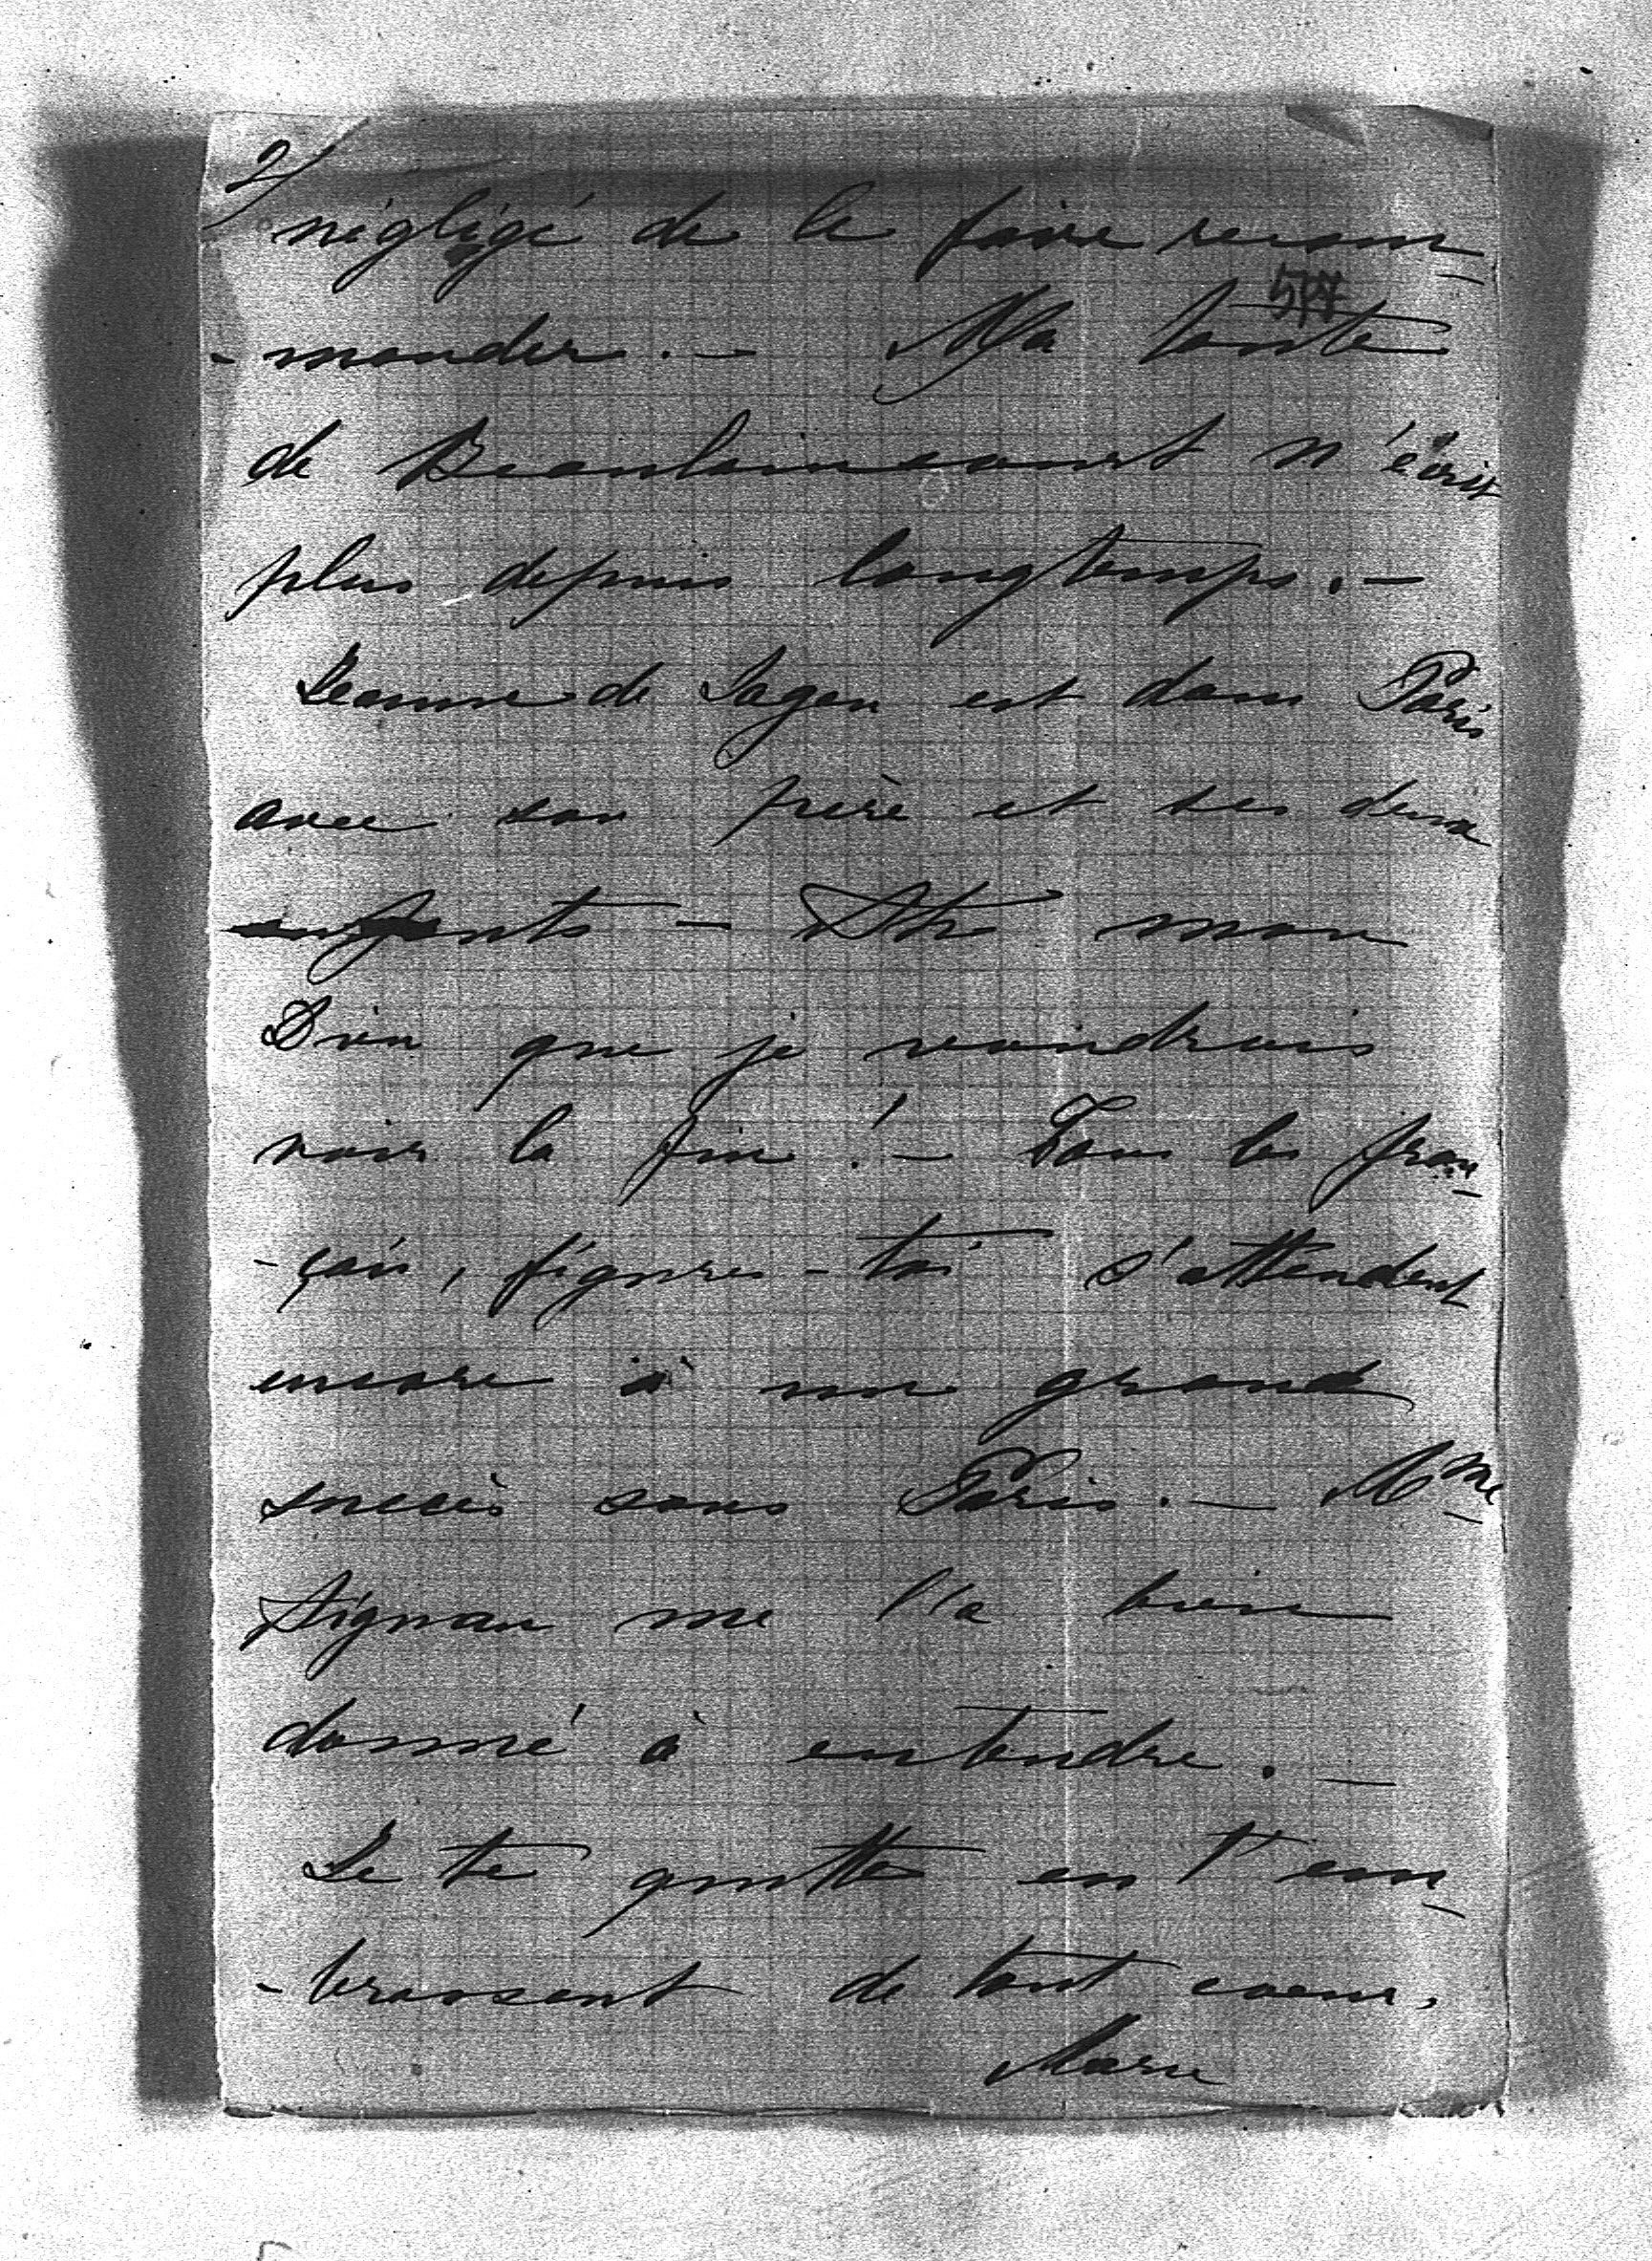 2/
négligé de le faire recom-
577
-mander. — Ma tante
de Beaulaincourt n'écrit
plus depuis longtemps. —
Jeanne de Sagan est dans Paris
avec son frère et ses deux
enfants — Ah mon
Dieu que je voudrais
voir la fin ! — Tous les fran-
-çais, figures-toi s'attendent
encore à un grand
succès sous Paris. — Mme
Aignan me l'a bien
donné à entendre. —
Je te quitte en t'em-
-brassant de tout coeur,
Marie